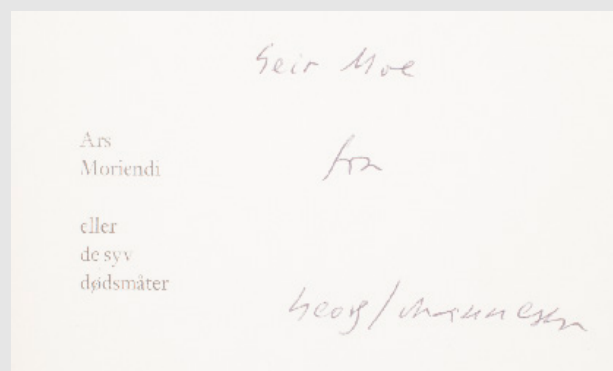 Geir Moe
Ars
Moriendi
fra
eller
de syv
dødsmåter
Georg Johannesen